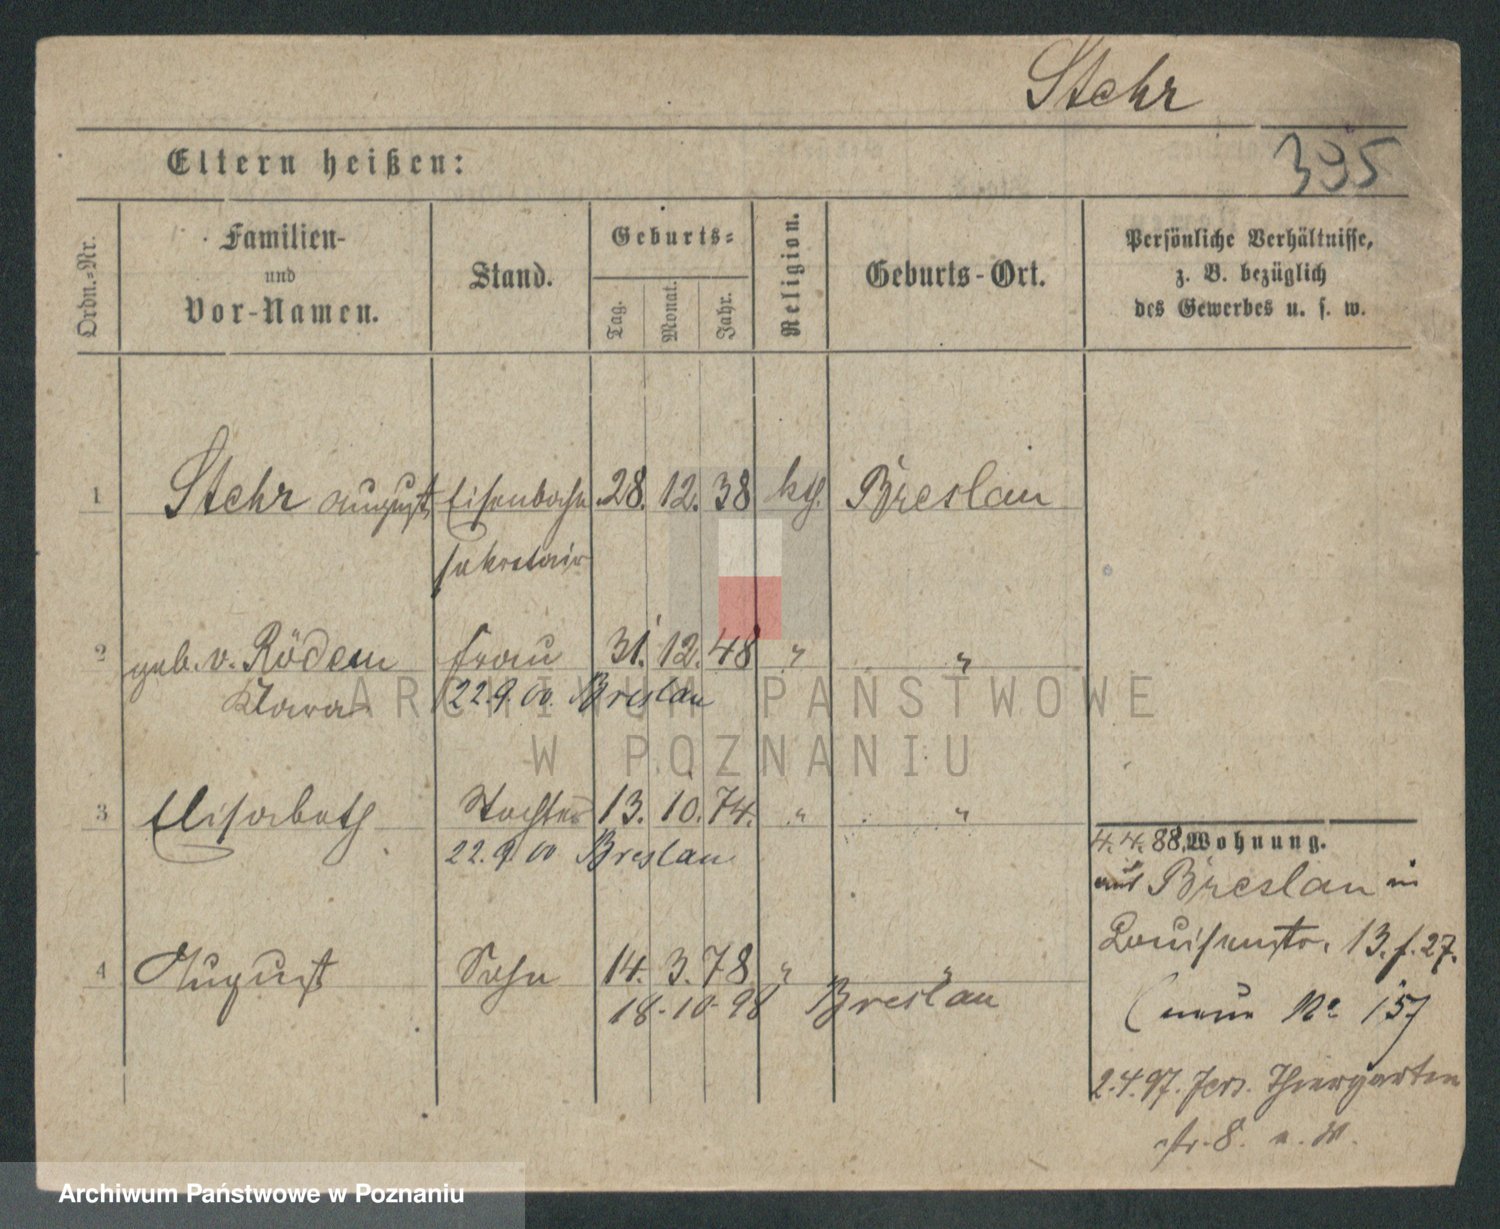 Stehr
395
Eltern heißen:
Ordn.-Nr.
Familien-
und
Vor-Namen.
Stand.
Geburts-
Tag.
Monat.
Jahr.
Religion.
Geburts-Ort.
Persönliche Verhältnisse,
z. B. bezüglich
des Gewerbes u. s. w.
1 Stehr August Eisenbahn 28. 12. 38 Breslau
sekretair
2 geb. v. Rödern Frau 31. 12. 48 " "
Klara 22.9.00. Breslau
3 Elisabeth Tochter 13. 10. 74. " "
22.9.00 Breslau
4 August Sohn 14. 3. 78 " "
18-10-98 Breslau
4.4.88. Wohnung.
aus Breslau in
Louisenstr. 13. f. 27.
(neue No 15)
2.4.97. Jers. Thiergarten
str. 8.
ARCHIWUM PAŃSTWOWE
W POZNANIU
Archiwum Państwowe w Poznaniu